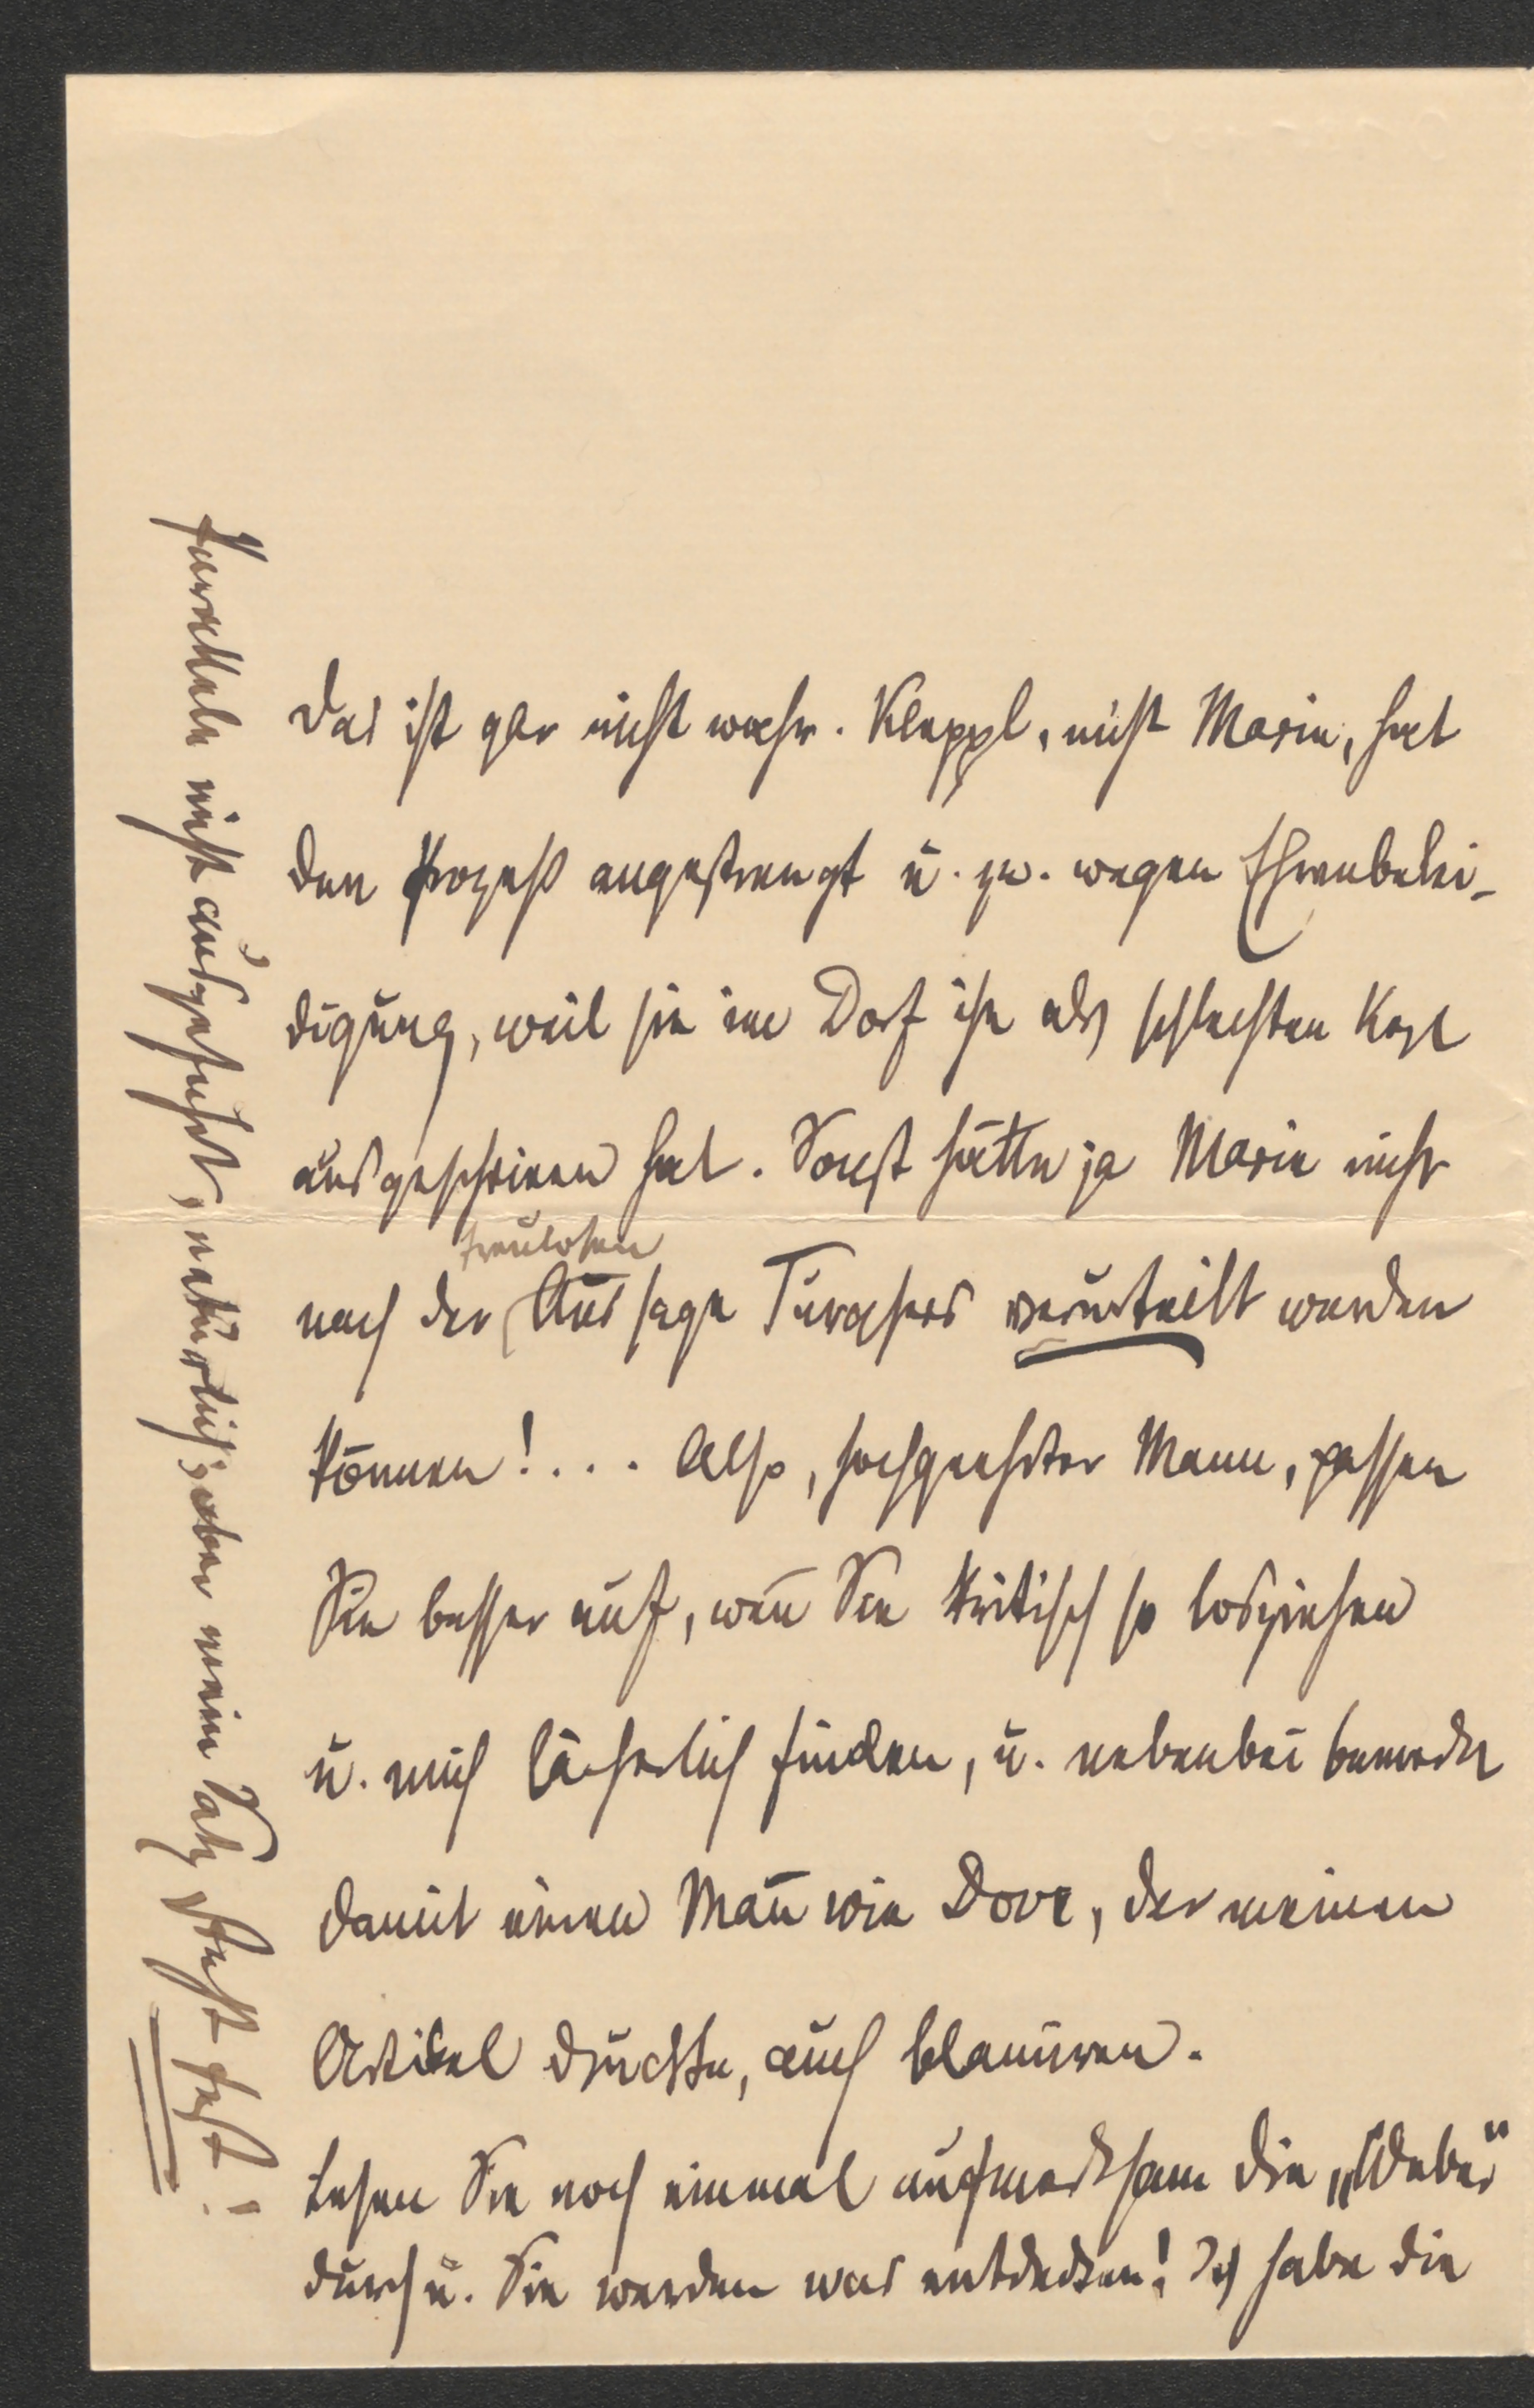 Das ist gar nicht wahr. Kleppl, nicht Marie, hat
den Prozeß angestrengt u. zw. wegen Ehrenbelei-
digung, weil sie im Dorf ihn als schlechten Kerl
ausgeschrieen hat. Sonst hätte ja Marie nicht
treulosen
nach der Aussage verurteilt werden
können! ... Also, hochgeehrter Mann, passen
Sie besser auf, weñ Sie kritisch so losziehen
u. mich lächerlich finden, u. nebenbei bemerkt
damit einen Mañ wie Dove, der meinen
Artikel druckte, auch blamiren.
Lesen Sie noch einmal aufmerksam die „Weber“
durch u. Sie werden was entdecken! Ich habe die
nicht ausgeführt, natürlich; aber mein Satz steht fest!